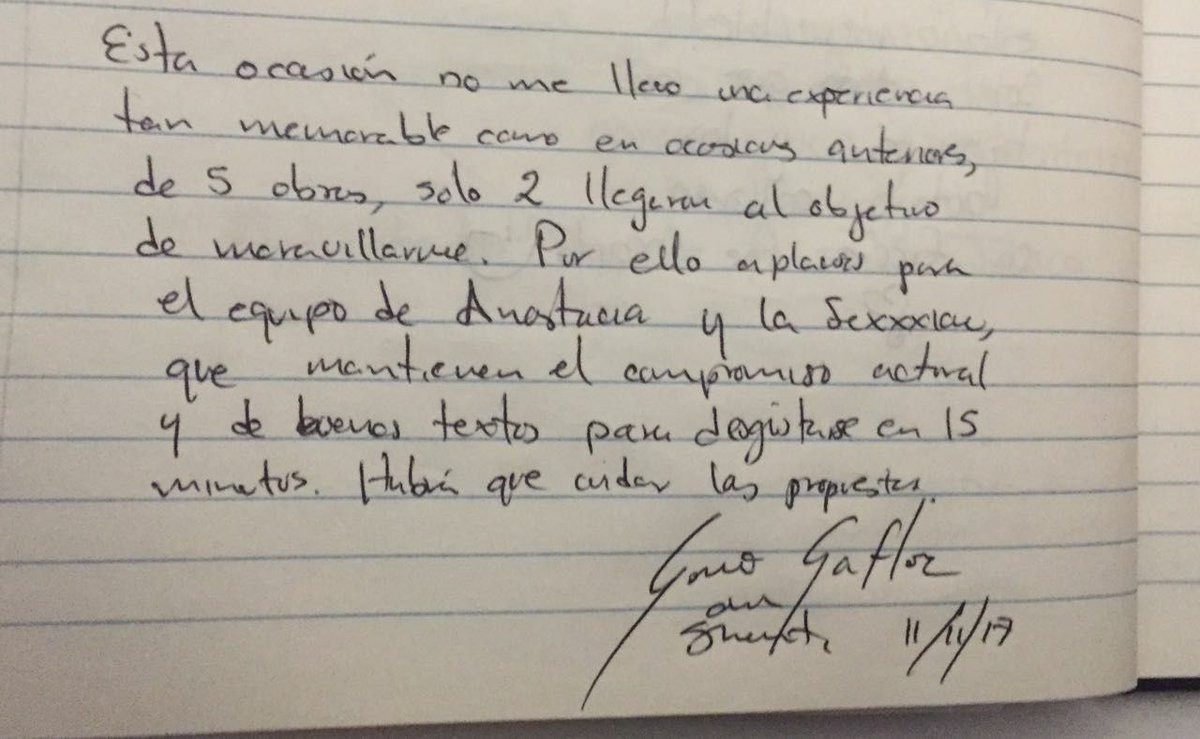 Esta ocasión no me llevo una experiencia
tan memorable como en ocasiones anteriores,
de 5 obras, solo 2 llegaron al objetivo
de maravillarme. Por ello aplausos para
el equipo de Anastacia y la Sexxxion,
que mantienen el compromiso actoral
y de buenos textos para degustarse en 15
minutos. Habrá que cuidar las propuestas.
Gaflor
11/11/17